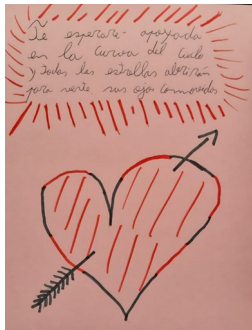 Te esperaré apoyada
en la curva del cielo
y todas las estrellas abrirán
para verte sus ojos conmovidos